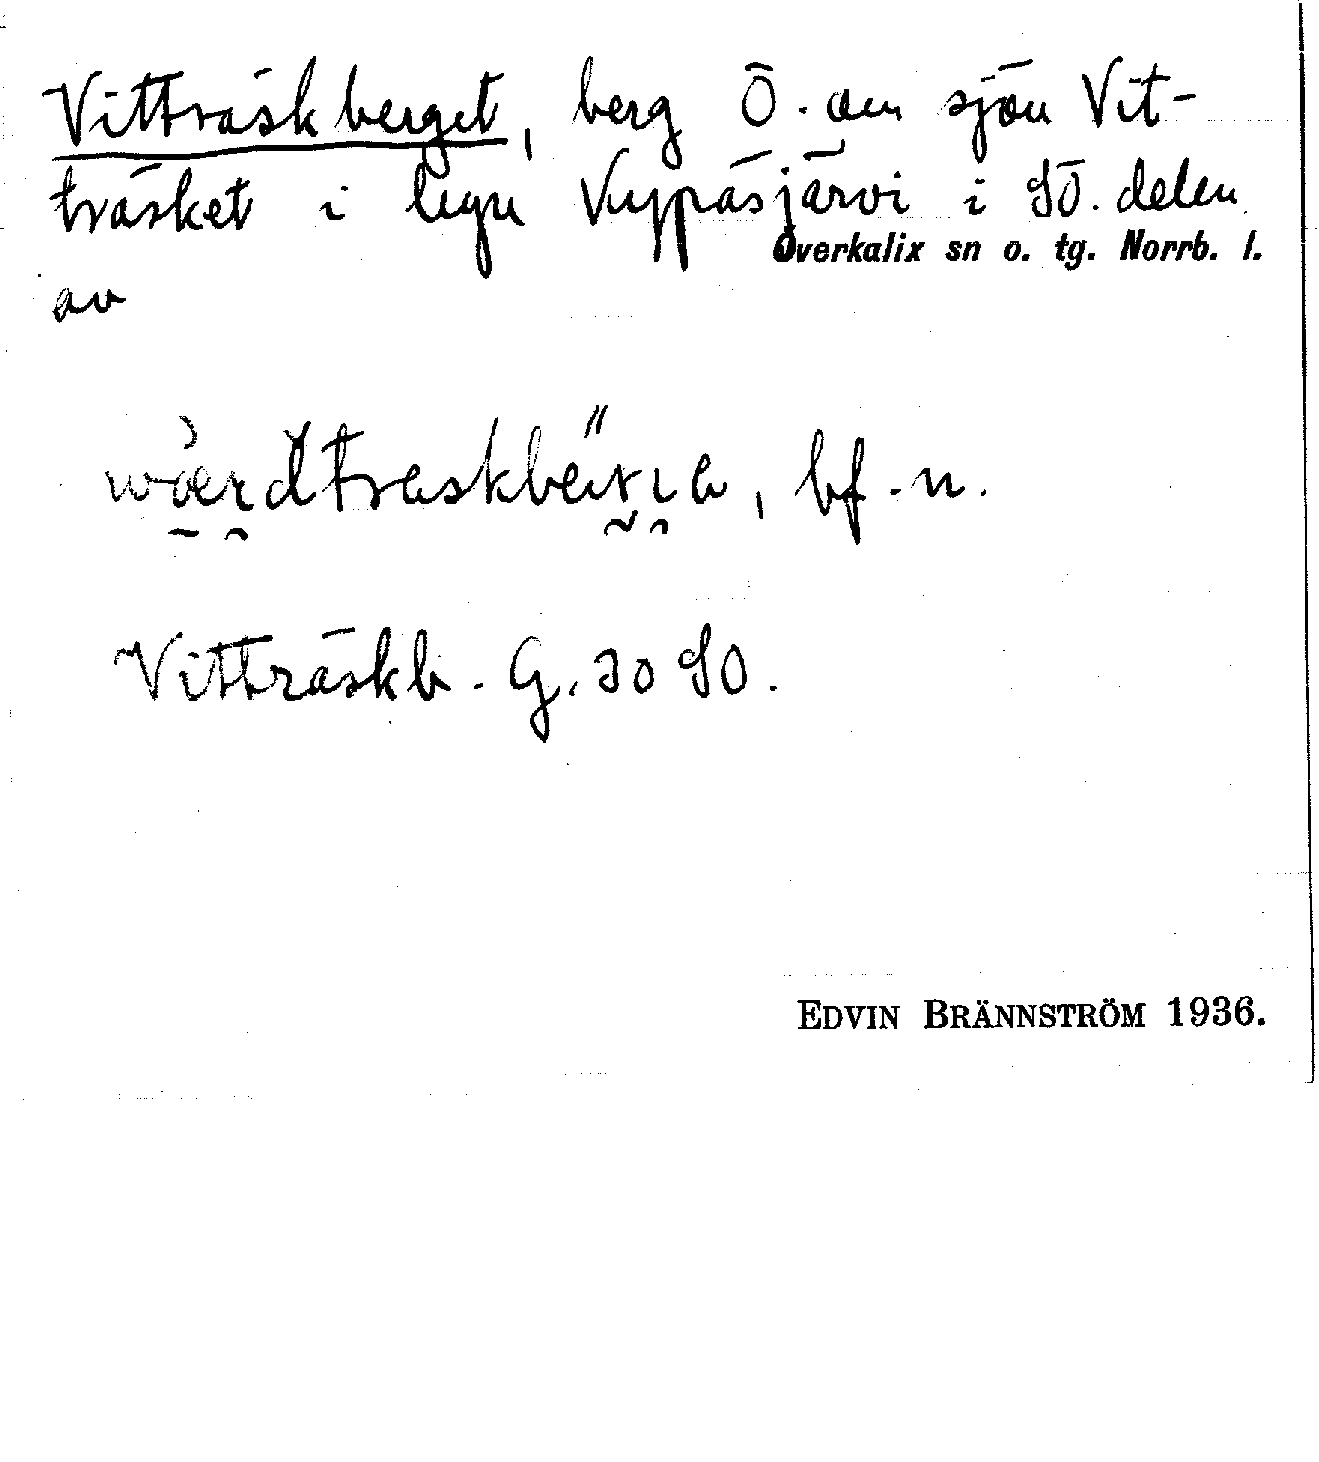 Vitträskberget, berg Ö. om sjön Vit-
träsket i byn Vyppäsjärvi i SÖ. delen
Överkalix sn o. tg. Norrb. l.
av
bf. n.
Vitträskb. G. 30 SO.
EDVIN BRÄNNSTRÖM 1936.